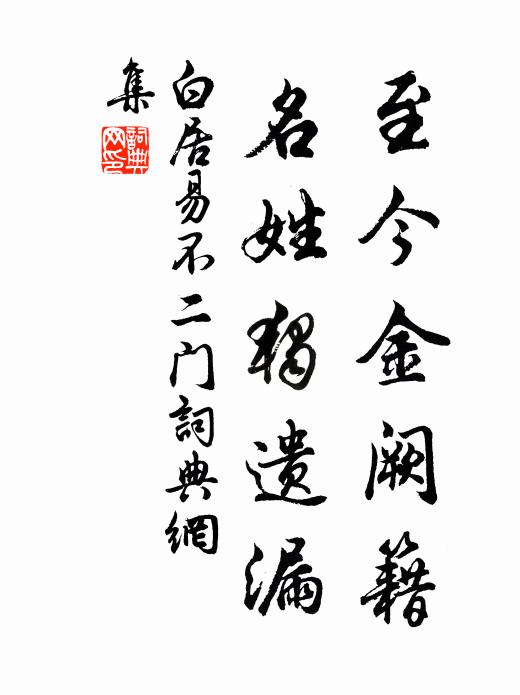 至今金阙籍
名姓独遗漏
白居易不二门詞典網
集
詞典网印